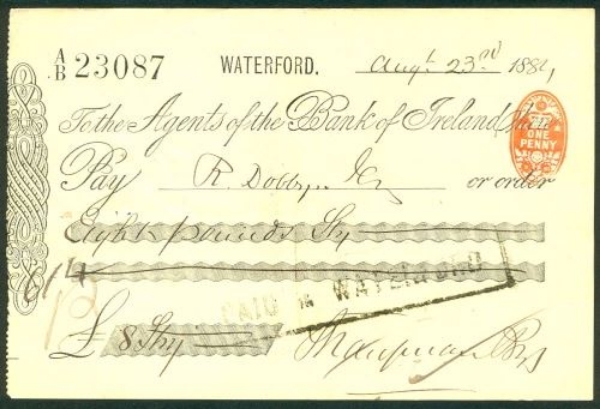 A/B 23087 WATERFORD. Augt 23rd 1884
To the Agents of the Bank of Ireland here
ONE PENNY
Pay R. Dobbyn or order
Eight pounds Stg
PAID IN WATERFORD
£ 8 Stg